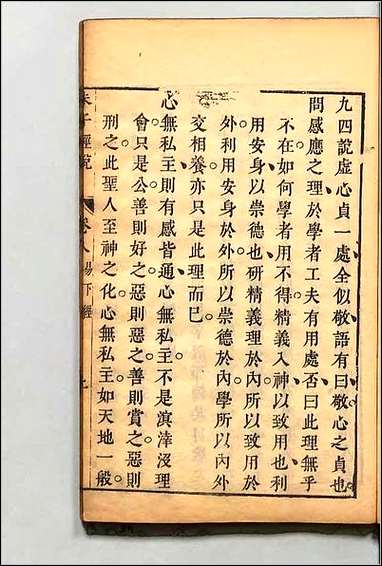 九四說虛心貞一處全似敬語有曰敬心之貞也
問感應之理於學者工夫有用處否曰此理無乎
不在如何學者用不得精義入神以致用也利
用安身以崇德也研精義理於內所以致用於
外利用安身於外所以崇德於內學所以內外
交相養亦只是此理而巳
心無私主則有感皆通心無私主不是溟涬沒理
會只是公善則好之惡則惡之善則賞之惡則
刑之此聖人至神之化心無私主如天地一般
朱子經說 卷八 易下經